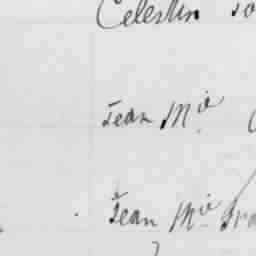 Celestin
Jean Mie
Jean Mie